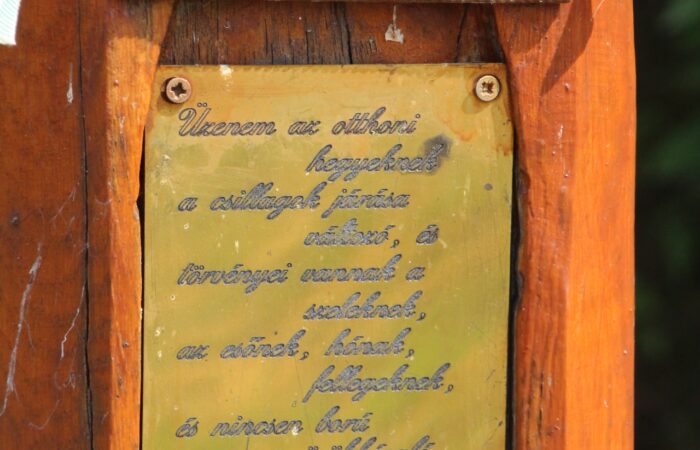 Üzenem az otthoni
hegyeknek
a csillagok járása
változó, és
törvényei vannak a
szeleknek,
az esőnek, hónak,
fellegeknek,
és nincsen ború